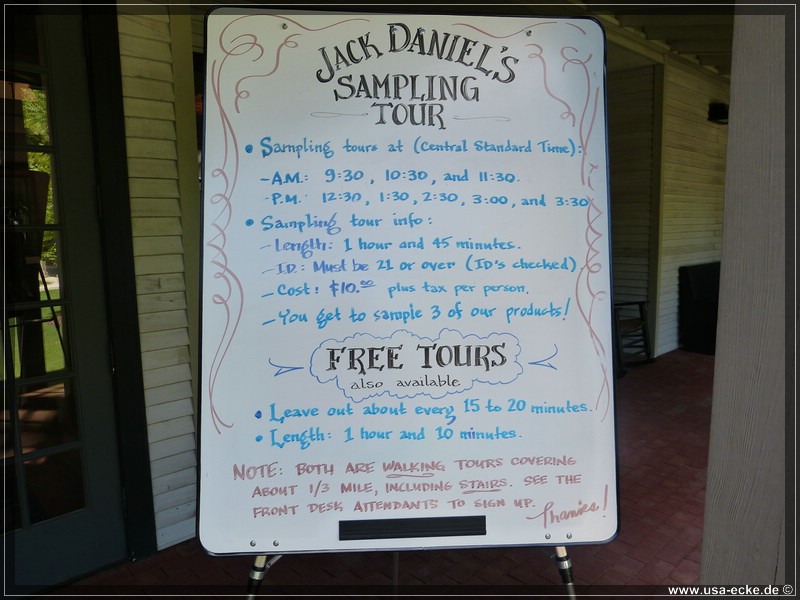 JACK DANIEL'S
SAMPLING
TOUR
• Sampling tours at (Central Standard Time):
- A.M.: 9:30, 10:30, and 11:30.
- P.M.: 12:30, 1:30, 2:30, 3:00, and 3:30
• Sampling tour info:
- Length: 1 hour and 45 minutes.
- I.D.: Must be 21 or over (ID's checked)
- Cost: $10.00 plus tax per person.
- You get to sample 3 of our products!
FREE TOURS
also available
• Leave out about every 15 to 20 minutes.
• Length: 1 hour and 10 minutes.
NOTE: BOTH ARE WALKING TOURS COVERING
ABOUT 1/3 MILE, INCLUDING STAIRS. SEE THE
FRONT DESK ATTENDANTS TO SIGN UP.
Thanks!
www.usa-ecke.de ©